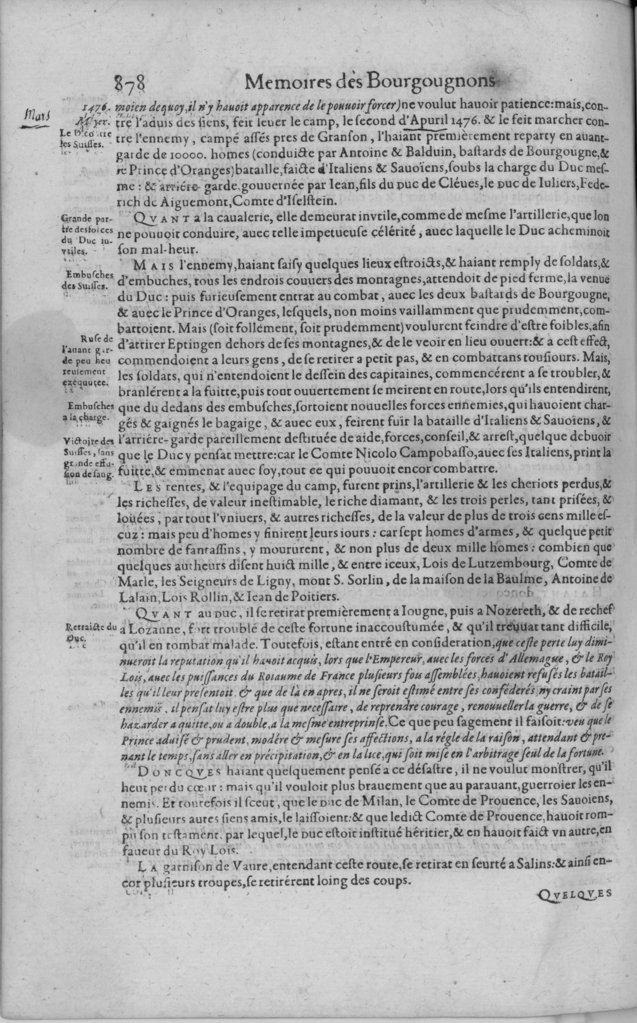 878 Memoires dès Bourgougnons
Mars
1476.
Meyer.
Le Dé
les Suisses.
moien dequoy, il n'y hauoit apparence de le pouuoir forcer) ne voulut hauoir patience: mais, con-
tre l'aduis des siens, feit leuer le camp, le second d'Apuril 1476. & le feit marcher con-
tre l'ennemy, campé assés pres de Granson, l'haiant premièrement reparty en auant-
garde de 10000. homes (conduicte par Antoine & Balduin, bastards de Bourgougne, &
le Prince d'Oranges) bataille, faicte d'Italiens & Sauoïens, soubs la charge du Duc mes-
me: & arriére-garde, gouuernée par Iean, fils du DUC de Cléues, le DUC de Iuliers, Fede-
rich de Aiguemont, Comte d'Iselstein.
Grande par-
tie des forces
du Duc in-
vtiles.
QVANT a la caualerie, elle demeurat invtile, comme de mesme l'artillerie, que lon
ne pouuoit conduire, auec telle impetueuse célérité, auec laquelle le Duc acheminoit
son mal-heur.
Embusches
des Suisses.
MAIS l'ennemy, haiant saisy quelques lieux estroicts, & haiant remply de soldats, &
d'embuches, tous les endrois couuers des montagnes, attendoit de pied ferme, la venue
du Duc: puis furieusement entrat au combat, auec les deux bastards de Bourgougne,
& auec le Prince d'Oranges, lesquels, non moins vaillamment que prudemment, com-
battoient. Mais (soit follément, soit prudemment) voulurent feindre d'estre foibles, afin
Ruse de
l'auant gar-
de peu heu
reusement
exéquutée.
d'attirer Eptingen dehors de ses montagnes, & de le veoir en lieu ouuert: & a cest effect,
commendoient a leurs gens, de se retirer a petit pas, & en combattans tousiours. Mais,
les soldats, qui n'entendoient le dessein des capitaines, commencérent a se troubler, &
branlérent a la fuitte, puis tout ouuertement se meirent en route, lors qu'ils entendirent,
Embusches
a la charge.
que du dedans des embusches, sortoient nouuelles forces ennemies, qui hauoient char-
gés & gaignés le bagaige, & auec eux, feirent fuir la bataille d'Italiens & Sauoiens, &
Victoire des
Suisses, sans
grande effu-
sion de sang.
l'arriére-garde pareillement destituée de aide, forces, conseil, & arrest, quelque debuoir
que le Duc y pensat mettre: car le Comte Nicolo Campobasso, auec ses Italiens, print la
fuitte, & emmenat auec soy, tout ce qui pouuoit encor combattre.
LES tentes, & l'équipage du camp, furent prins, l'artillerie & les cheriots perdus, &
les richesses, de valeur inestimable, le riche diamant, & les trois perles, tant prisées, &
louées, par tout l'vniuers, & autres richesses, de la valeur de plus de trois cens mille es-
cuz: mais peu d'homes y finirent leurs iours: car sept homes d'armes, & quelque petit
nombre de fantassins, y moururent, & non plus de deux mille homes: combien que
quelques autheurs disent huict mille, & entre iceux, Lois de Lutzembourg, Comte de
Marle, les Seigneurs de Ligny, mont S. Sorlin, de la maison de la Baulme, Antoine de
Lalain, Lois Rollin, & Iean de Poitiers.
Retraicte du
Duc.
QVANT AU DUC, il se retirat premièrement a Iougne, puis a Nozereth, & de rechef
a Lozanne, fort troublé de ceste fortune inaccoustumée, & qu'il treuuat tant difficile,
qu'il en tombat malade. Toutefois, estant entré en consideration, que ceste perte luy dimi-
nueroit la reputation qu'il hauoit acquis, lors que l'Empereur, auec les forces d'Allemague, & le Roy
Lois, auec les puissances du Roiaume de France plusieurs fois assemblées, hauoient refusés les batail-
les qu'il leur presentoit. & que de là en apres, il ne seroit estimé entre ses conféderés, ny craint par ses
ennemis. il pensat luy estre plus que necessaire, de reprendre courage, renouueller la guerre, & de se
hazarder a quitte, ou a double, a la mesme entreprinse. Ce que peu sagement il faisoit: veu que le
Prince aduisé & prudent, modére & mesure ses affections, a la régle de la raison, attendant & pre-
nant le temps, sans aller en précipitation, & en la lice, qui soit mise en l'arbitrage seul de la fortune.
DONCQVES haiant quelquement pensé a ce désastre, il ne voulut monstrer, qu'il
heut perdu cœur: mais qu'il vouloit plus brauement que au parauant, guerroier les en-
nemis. Et toutefois il sceut, que le DUC de Milan, le Comte de Prouence, les Sauoiens,
& plusieurs autres siens amis, le laissoient: & que ledict Comte de Prouence, hauoit rom-
pu son testament, par lequel, le DUC estoit institué héritier, & en hauoit faict vn autre, en
faueur du Roy Lois.
LA garnison de Vaure, entendant ceste route, se retirat en seurté a Salins: & ainsi en-
cor plusieurs troupes, se retirérent loing des coups.
QVELQVES